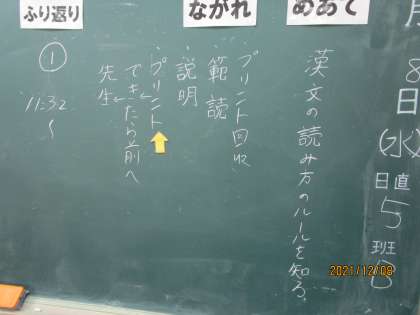 月
8
日
(水)
日直
5
班
B
めあて
漢文の読み方のルールを知る。
ながれ
プリント回収
範読
説明
プリント
できたら前へ
先生
ふり返り
①
11:32
〜
2021/12/08